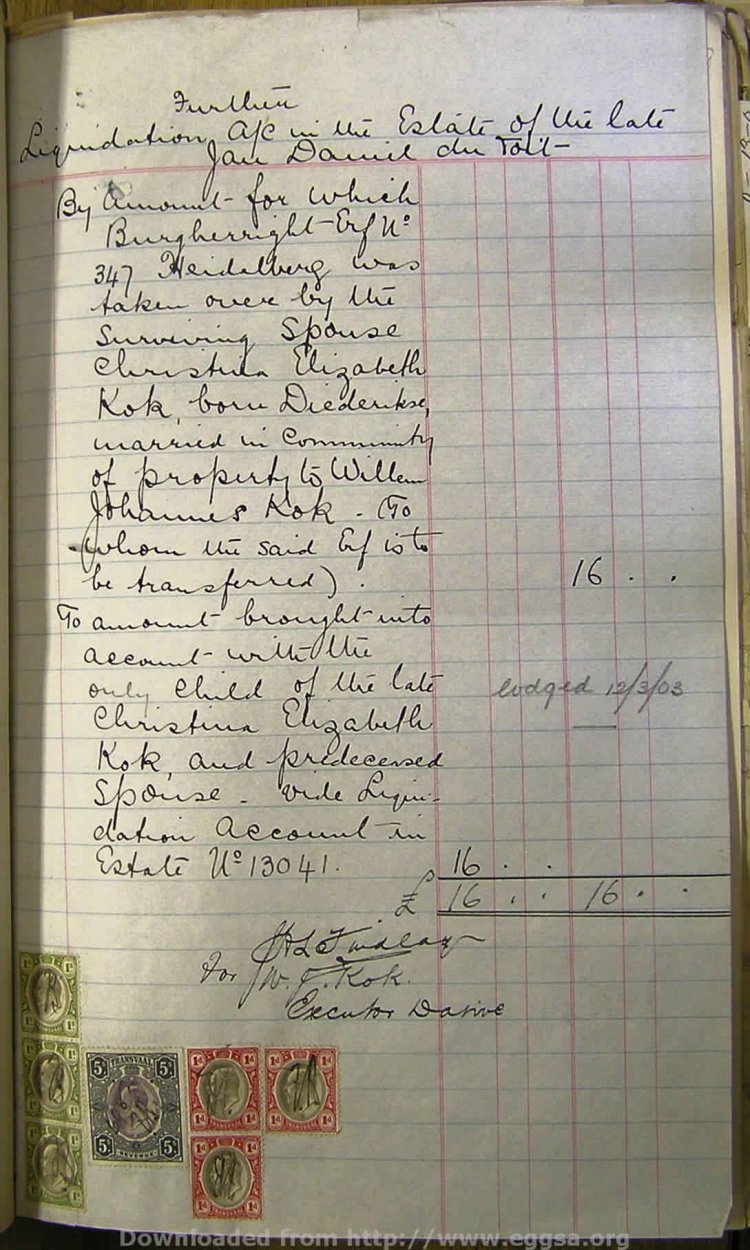 Further
Liquidation A/c in the Estate of the late
Jan Daniel du Toit -
By Amount for which
Burgherright Erf No
347 Heidelberg was
taken over by the
Surviving Spouse
Christina Elizabeth
Kok, born Diederikse,
married in Community
of property to Willem
Johannes Kok - (To
whom the said Erf is to
be transferred). 16 . .
To amount brought into
account with the
only child of the late
lodged 12/3/03
Christina Elizabeth
Kok, and predeceased
Spouse - vide Liqui-
dation Account in
Estate No 13041. 16 . .
£ 16 . . 16 . .
Findlay
for W. J. Kok.
Executor Dative
TRANSVAAL
5s 5s
5s 5s
REVENUE
1d 1d
1d 1d
1d 1d
Downloaded from http://www.eggsa.org